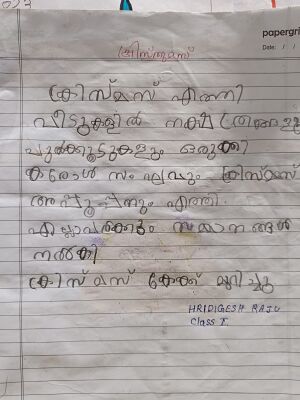 papergri
Date: / /
ക്രിസ്തുമസ്
ക്രിസ്മസ് എത്തി
വീടുകളിൽ നക്ഷത്രങ്ങളു
പുൽക്കൂടുകളും ഒരുക്കി
കരോൾ സംഘവും ക്രിസ്മസ്
അപ്പൂപ്പനും എത്തി.
എല്ലാവർക്കും സമ്മാനങ്ങൾ
നൽകി
ക്രിസ്മസ് കേക്ക് മുറിച്ചു
HRIDIGESH RAJU
Class I